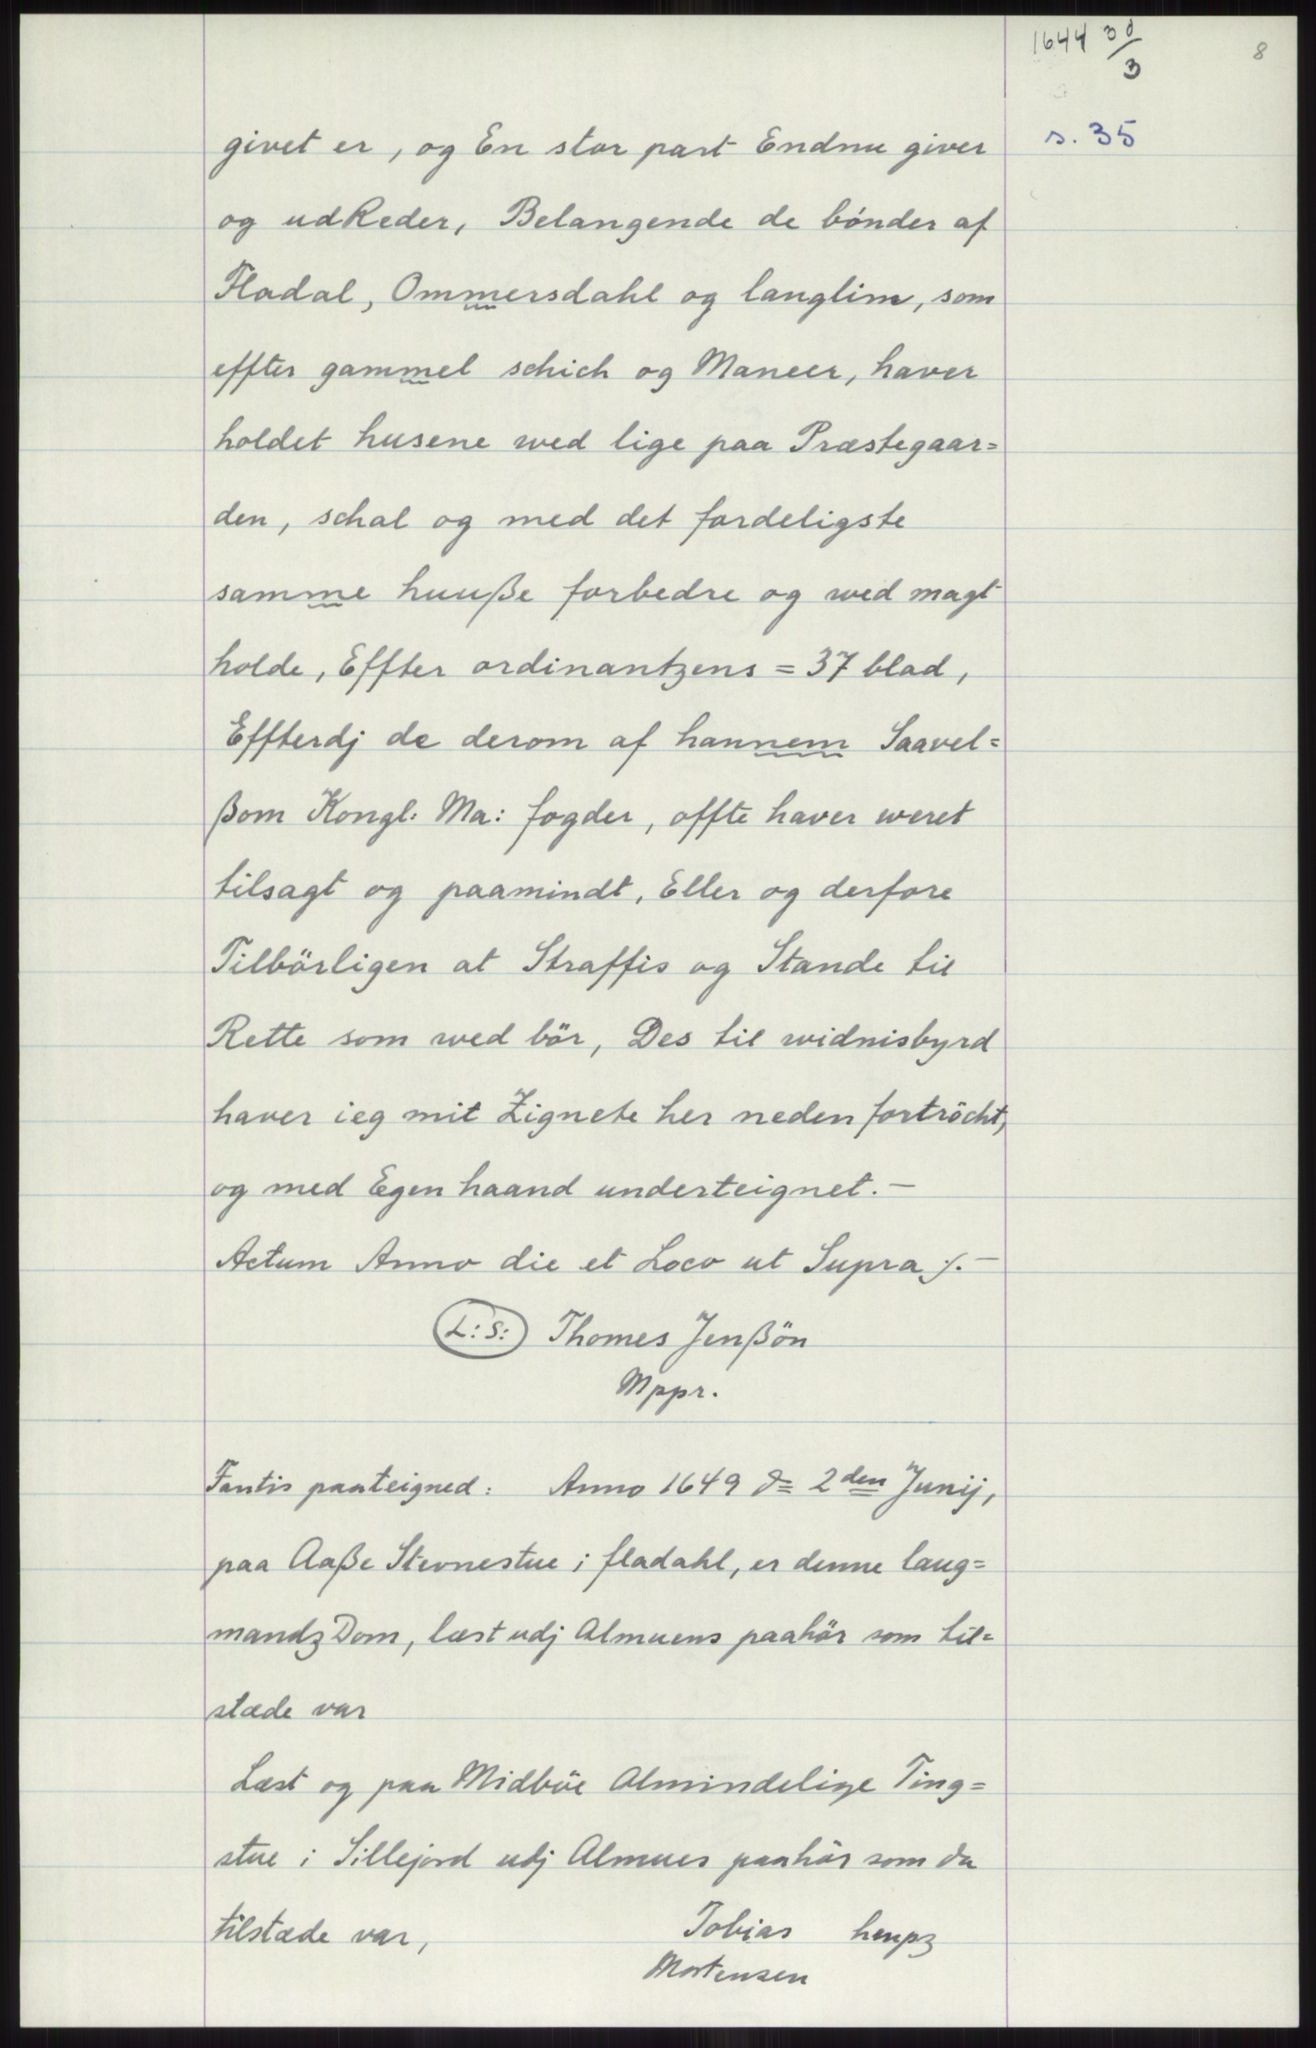 1644 30/3
8
s. 35
givet er, og En stor part Endnu giver
og udReder, Belangende de bönder af
Fladal, Ommersdahl og langlim, som
effter gammel schich og Maneer, haver
holdet husene wed lige paa Præstegaar=
den, schal og med det forderligste
samme huuße forbedre og wed magt
holde, Effter ordinantzens = 37 blad,
Effterdj de derom af hannem Saavel=
ßom Kongl: Ma: fogder, offte haver weret
tilsagt og paamindt, Eller og derfore
Tilbörligen at Straffis og Stande til
Rette som wed bör, Des til widnisbyrd
haver ieg mit Zignete her neden fortröcht,
og med Egen haand underteignet.-
Actum Anno die et Loco ut Supra ./.-
L: S: Thomes Jenßön
Mppr.
Fantis paateigned: Anno 1649 d= 2den Junij,
paa Aaße Stevnestue i fladahl, er denne laug=
mandz Dom, læst udj Almuens paahör som til=
stæde var
Læst og paa Midböe Almindelige Ting=
stue i Sillejord udj Almues paahör som da
tilstæde var, Tobias
Mortensen